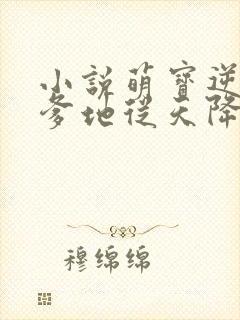 小説萌寶逆
爹地從天降
穆绵绵